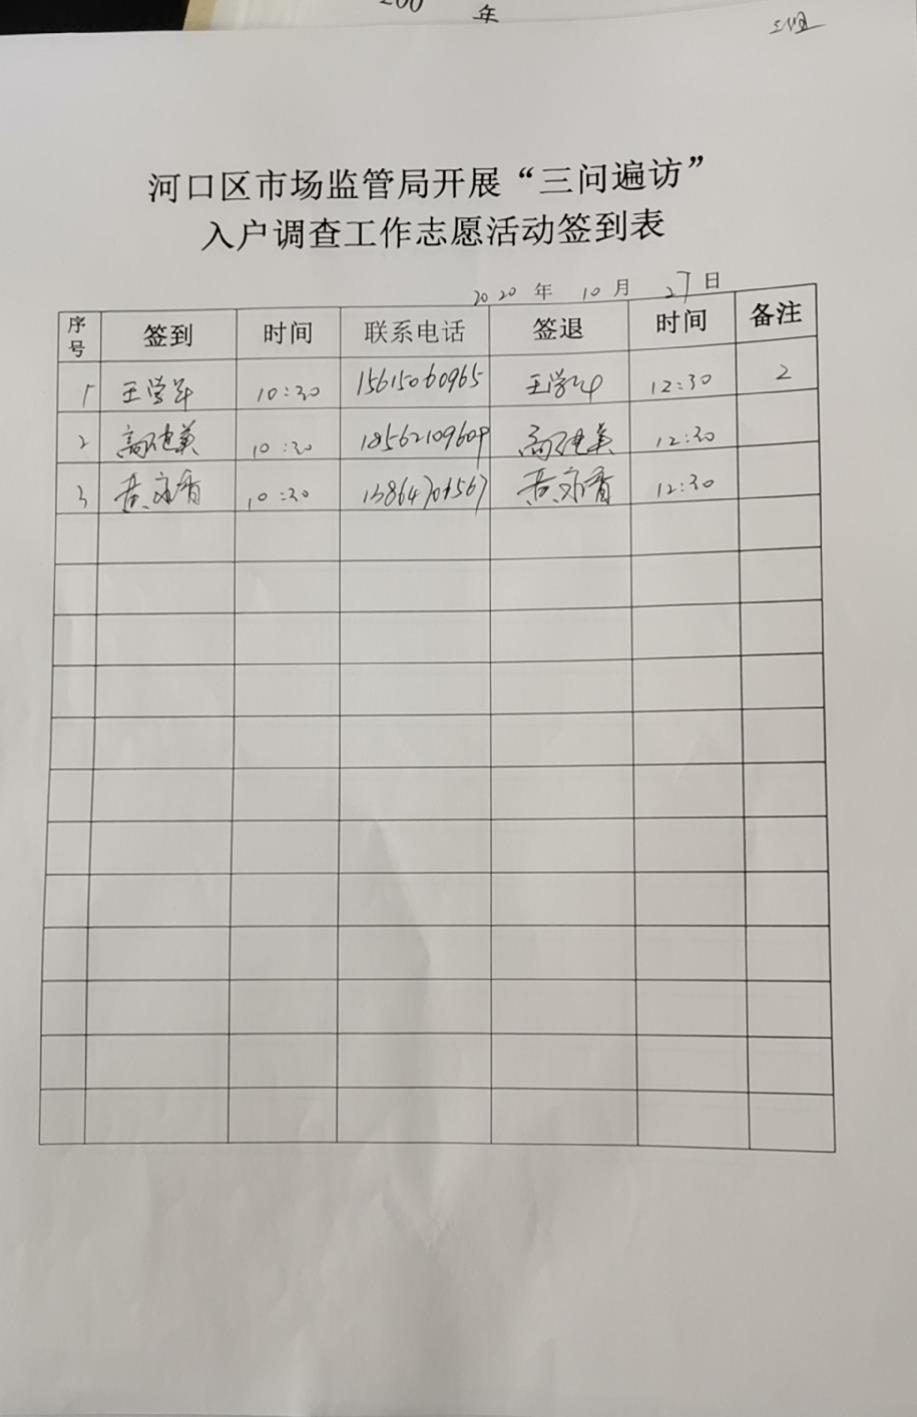 年
三组
河口区市场监管局开展“三问遍访”
入户调查工作志愿活动签到表
2020年 10月 27日
序号 签到 时间 联系电话 签退 时间 备注
1 王学军 10:30 15615060965 王学军 12:30 2
2 高建英 10:30 18562109609 高建英 12:30
3 黄永香 10:30 13864701567 黄永香 12:30